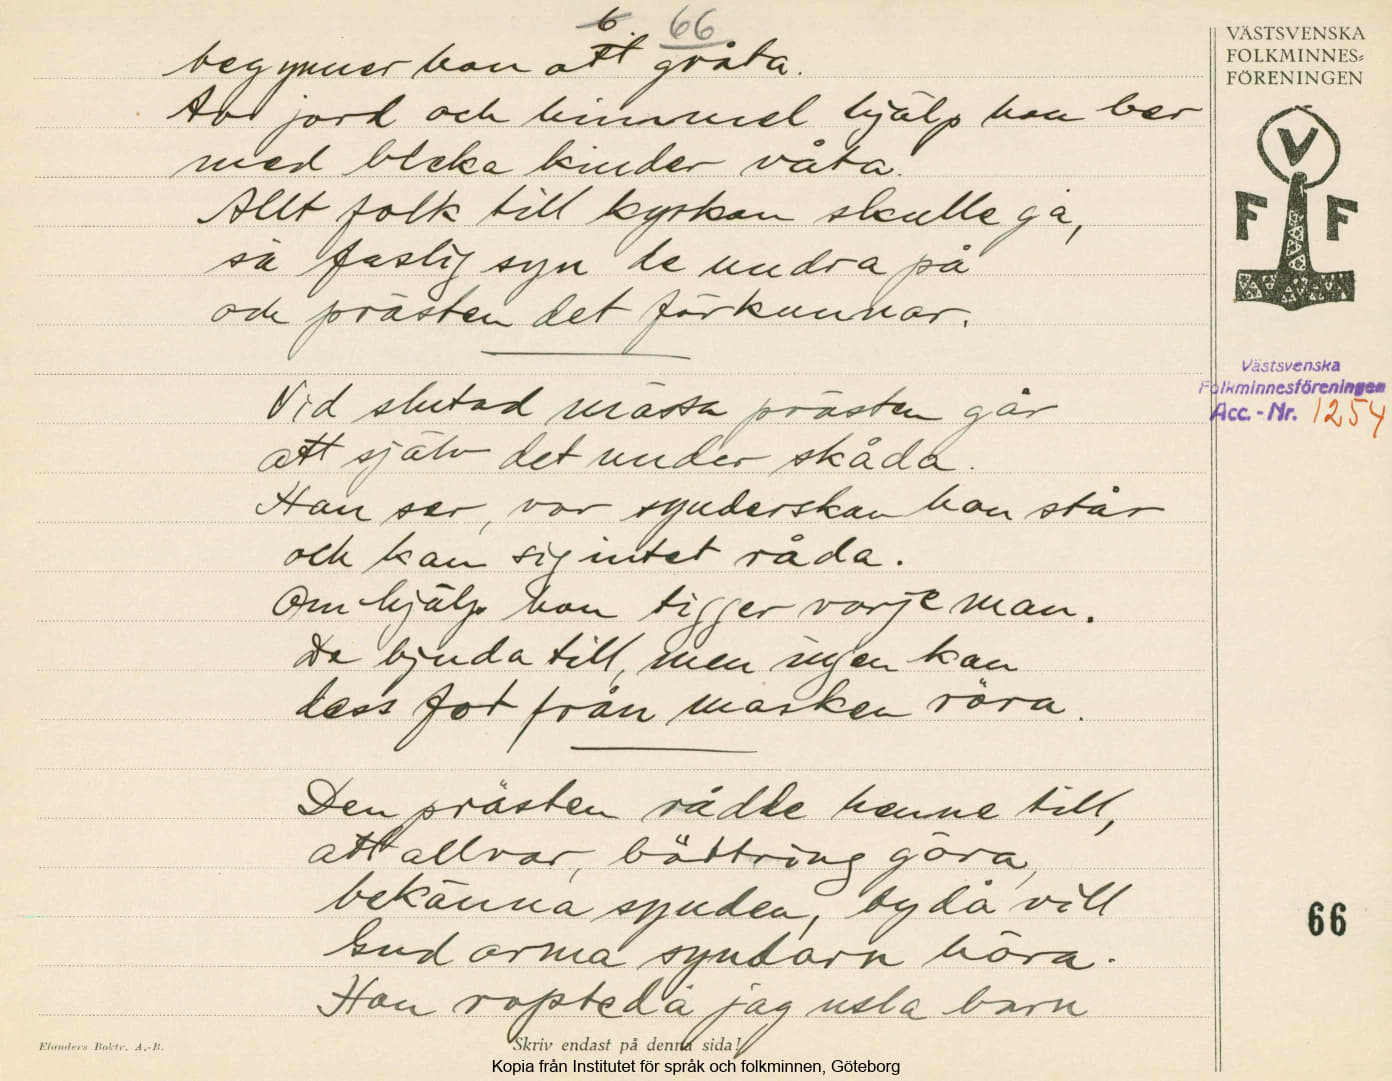 6 66
begynner hon att gråta.
Av jord och himmel hjälp hon ber
med bleka kinder våta.
Allt folk till kyrkan skulle gå,
så faslig syn de undra på
och prästen det förkunnar.
Vid slutad mässa prästen går
att själv det under skåda.
Han ser, var synderskan hon står
och kan sig intet råda.
Om hjälp hon tigger varje man.
De bjuda till, men ingen kan
dess fot från marken röra.
Den prästen rådde henne till,
att allvar, bättring göra,
bekänna synden, ty då vill
Gud arma syndarn höra.
Hon ropte då jag usla barn
VÄSTSVENSKA
FOLKMINNES-
FÖRENINGEN
V
F F
Västsvenska
Folkminnesföreningen
Acc. - Nr. 1254
66
Elanders Boktr. A.-B.
Skriv endast på denna sida!
Kopia från Institutet för språk och folkminnen, Göteborg